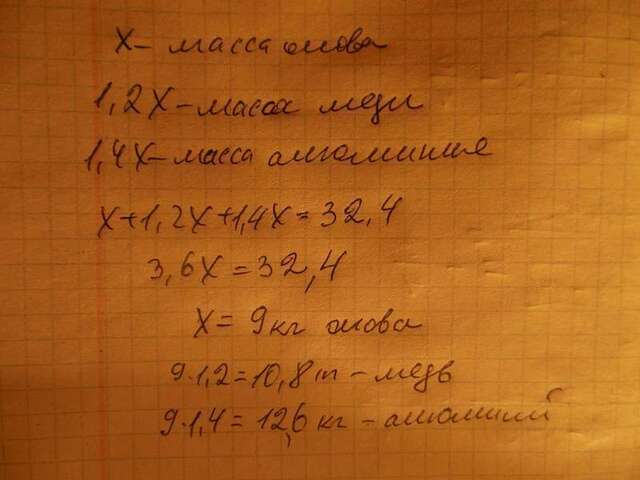 х – масса олова
1,2х – масса меди
1,4х – масса алюминия
х+1,2х+1,4х=32,4
3,6х=32,4
х= 9кг олова
9·1,2=10,8 – медь
9·1,4=12,6 кг – алюминий